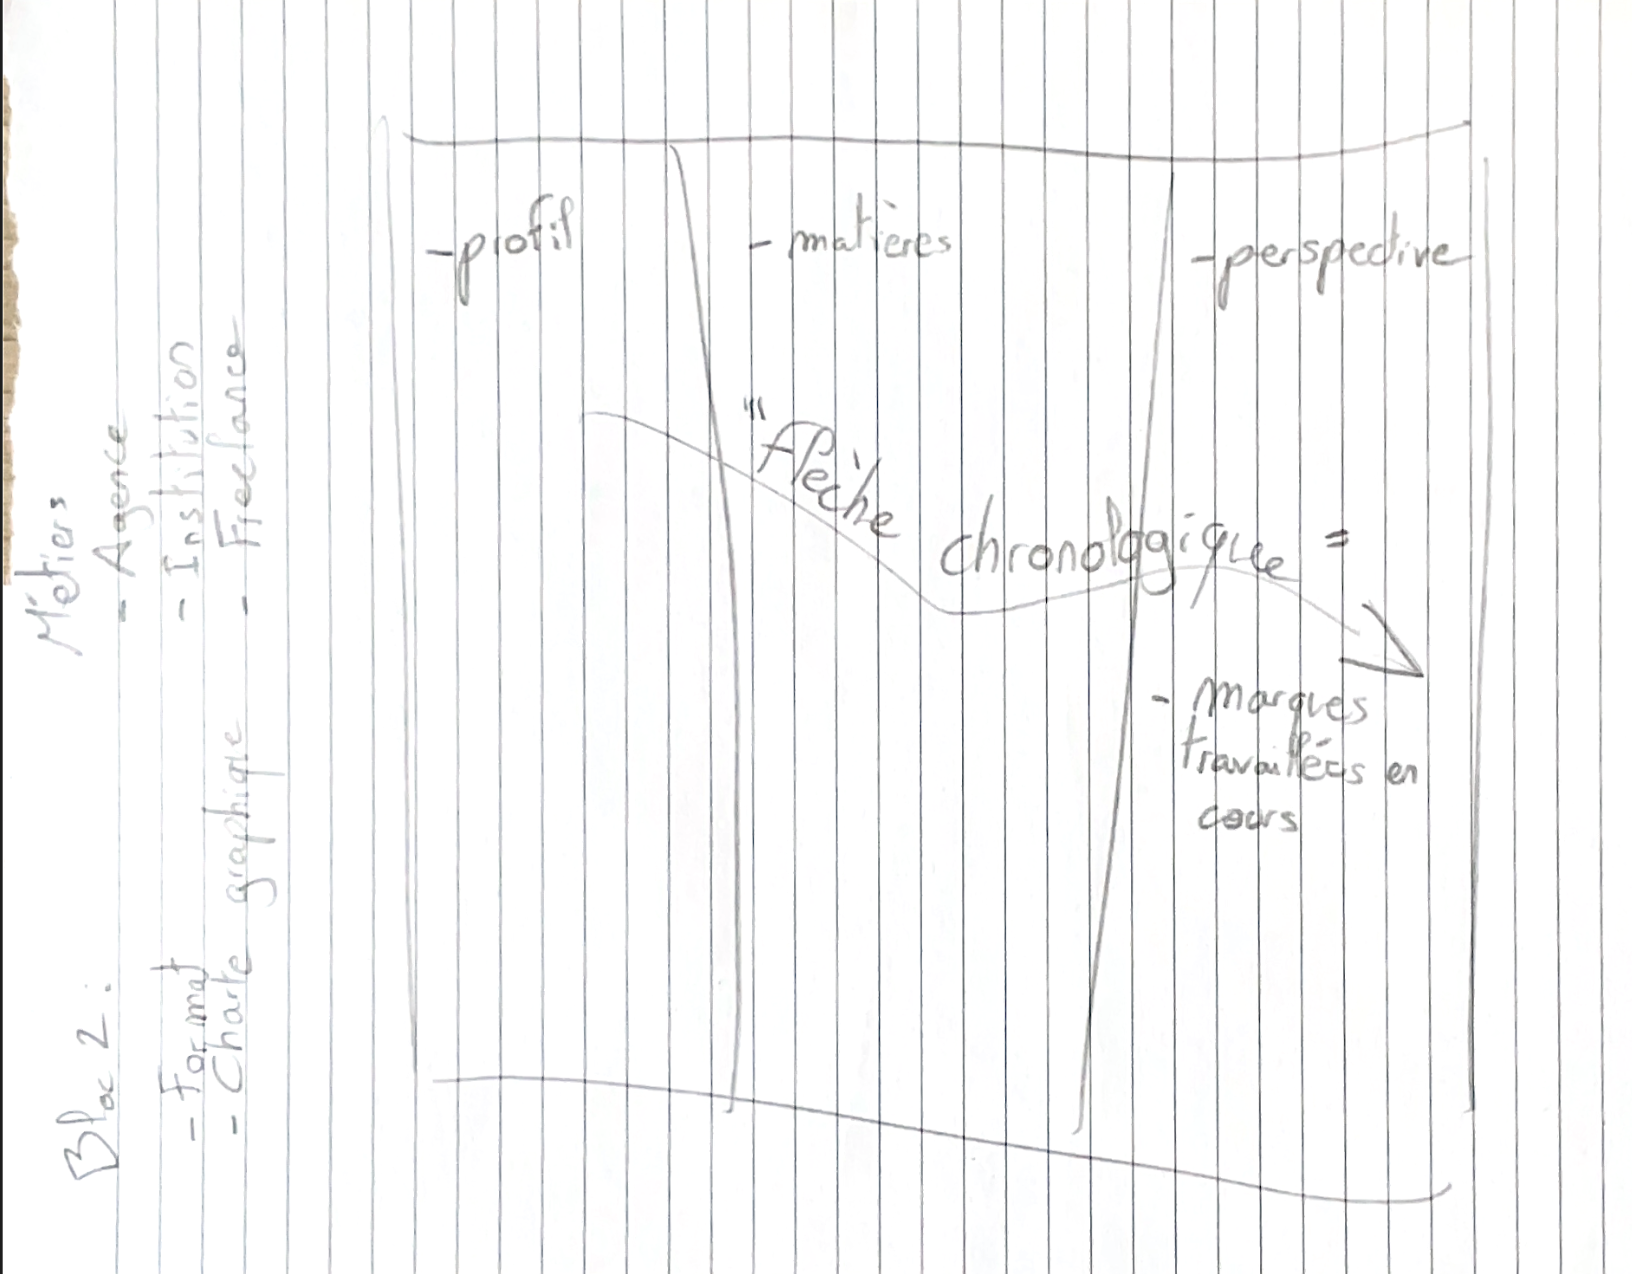 - profil
- matières
- perspective
"flèche chronologique"
- marques
travaillées en
cours
Métiers
- Agence
- Institution
- Freelance
Bloc 2 :
- Format
- Charte graphique